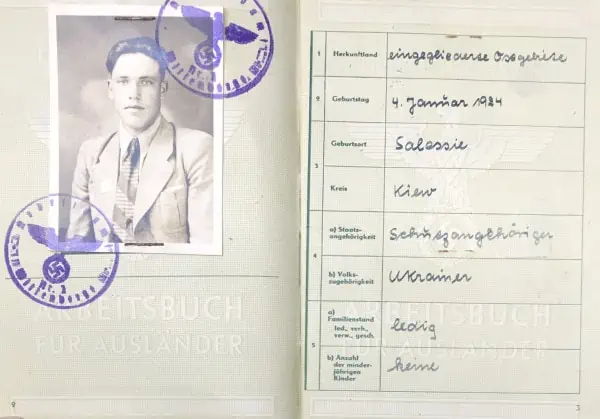 Nr. 2
Nr. 2
ARBEITSBUCH
FÜR AUSLÄNDER
2
1 Herkunftland eingegliederte Ostgebiete
2 Geburtstag 4. Januar 1924
Geburtsort Salessie
3
Kreis Kiew
a) Staats-
angehörigkeit Schutzangehöriger
4
b) Volks-
zugehörigkeit Ukrainer
a)
Familienstand
led., verh.,
verw., gesch. ledig
5
b) Anzahl
der minder-
jährigen
Kinder keine
ARBEITSBUCH
FÜR AUSLÄNDER
3